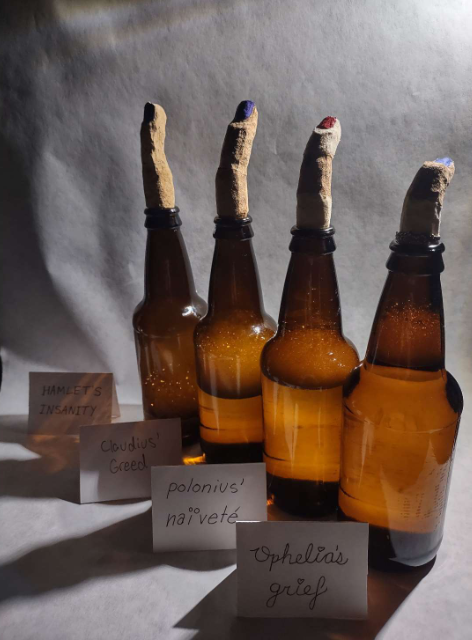 HAMLET'S
INSANITY
Claudius'
Greed
polonius'
naïveté
Ophelia's
grief